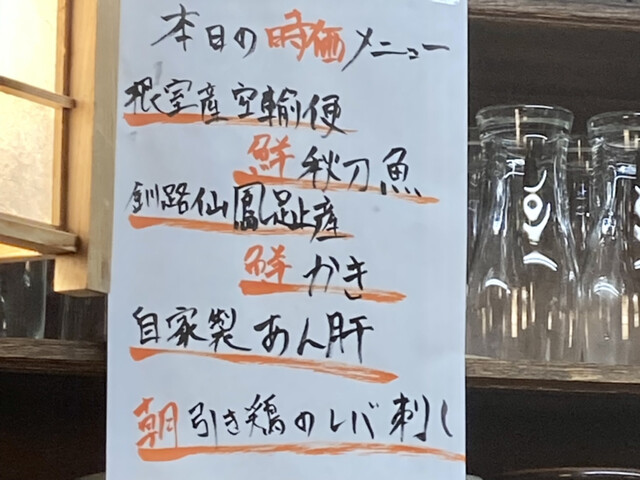 本日の時価メニュー
根室産空輸便
鮮秋刀魚
釧路仙鳳趾産
鮮かき
自家製あん肝
朝引き鶏のレバ刺し